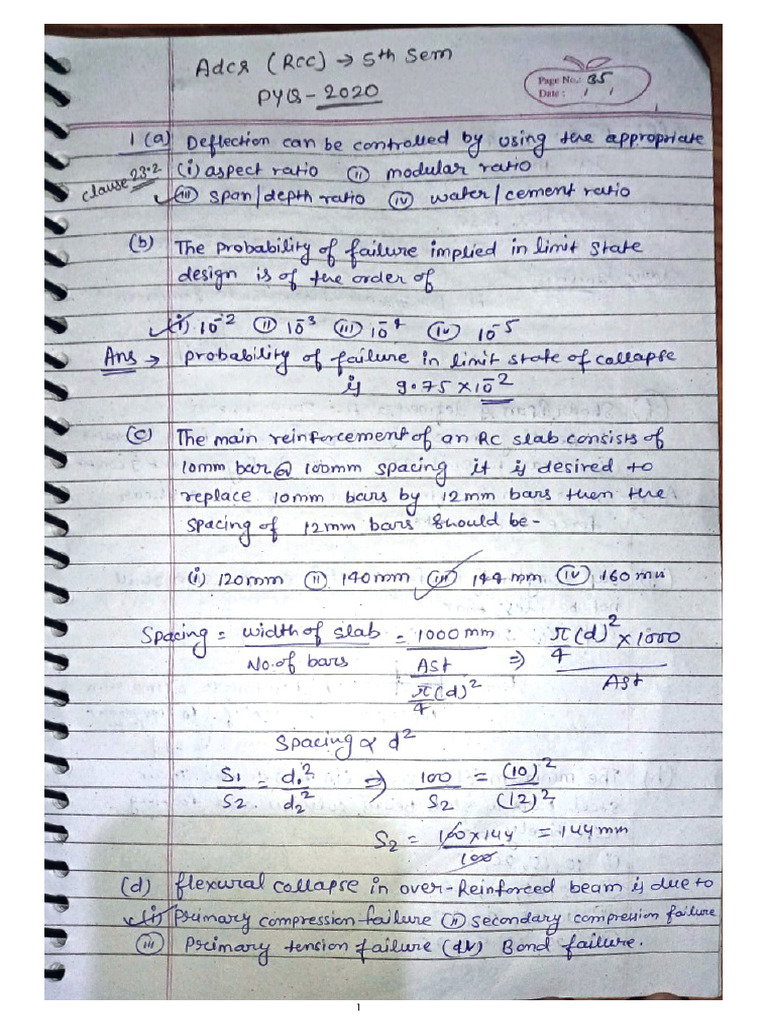 Adcs (RCC) → 5th Sem
PYQ - 2020
Page No.: 35
Date :
1 (a) Deflection can be controlled by using the appropriate
clause 23.2
(i) aspect ratio (ii) modular ratio
✓(iii) span/depth ratio (iv) water/cement ratio
(b) The probability of failure implied in limit state
design is of the order of
✓(i) 10⁻² (ii) 10⁻³ (iii) 10⁻⁴ (iv) 10⁻⁵
Ans → probability of failure in limit state of collapse
is 9.75 × 10⁻²
(c) The main reinforcement of an RC slab consists of
10mm bar @ 100mm spacing it is desired to
replace 10mm bars by 12mm bars then the
spacing of 12mm bars should be-
(i) 120mm (ii) 140mm ✓(iii) 144mm (iv) 160mm
Spacing = width of slab / No. of bars = 1000 mm / (Ast / (π/4 (d)²)) ⇒ π/4 (d)² × 1000 / Ast
Spacing ∝ d²
S1/S2 = d1²/d2² ⇒ 100/S2 = (10)²/(12)²
S2 = 100×144/100 = 144mm
(d) flexural collapse in over-Reinforced beam is due to
✓(i) Primary compression failure (ii) secondary compression failure
(iii) Primary tension failure (iv) Bond failure.
1